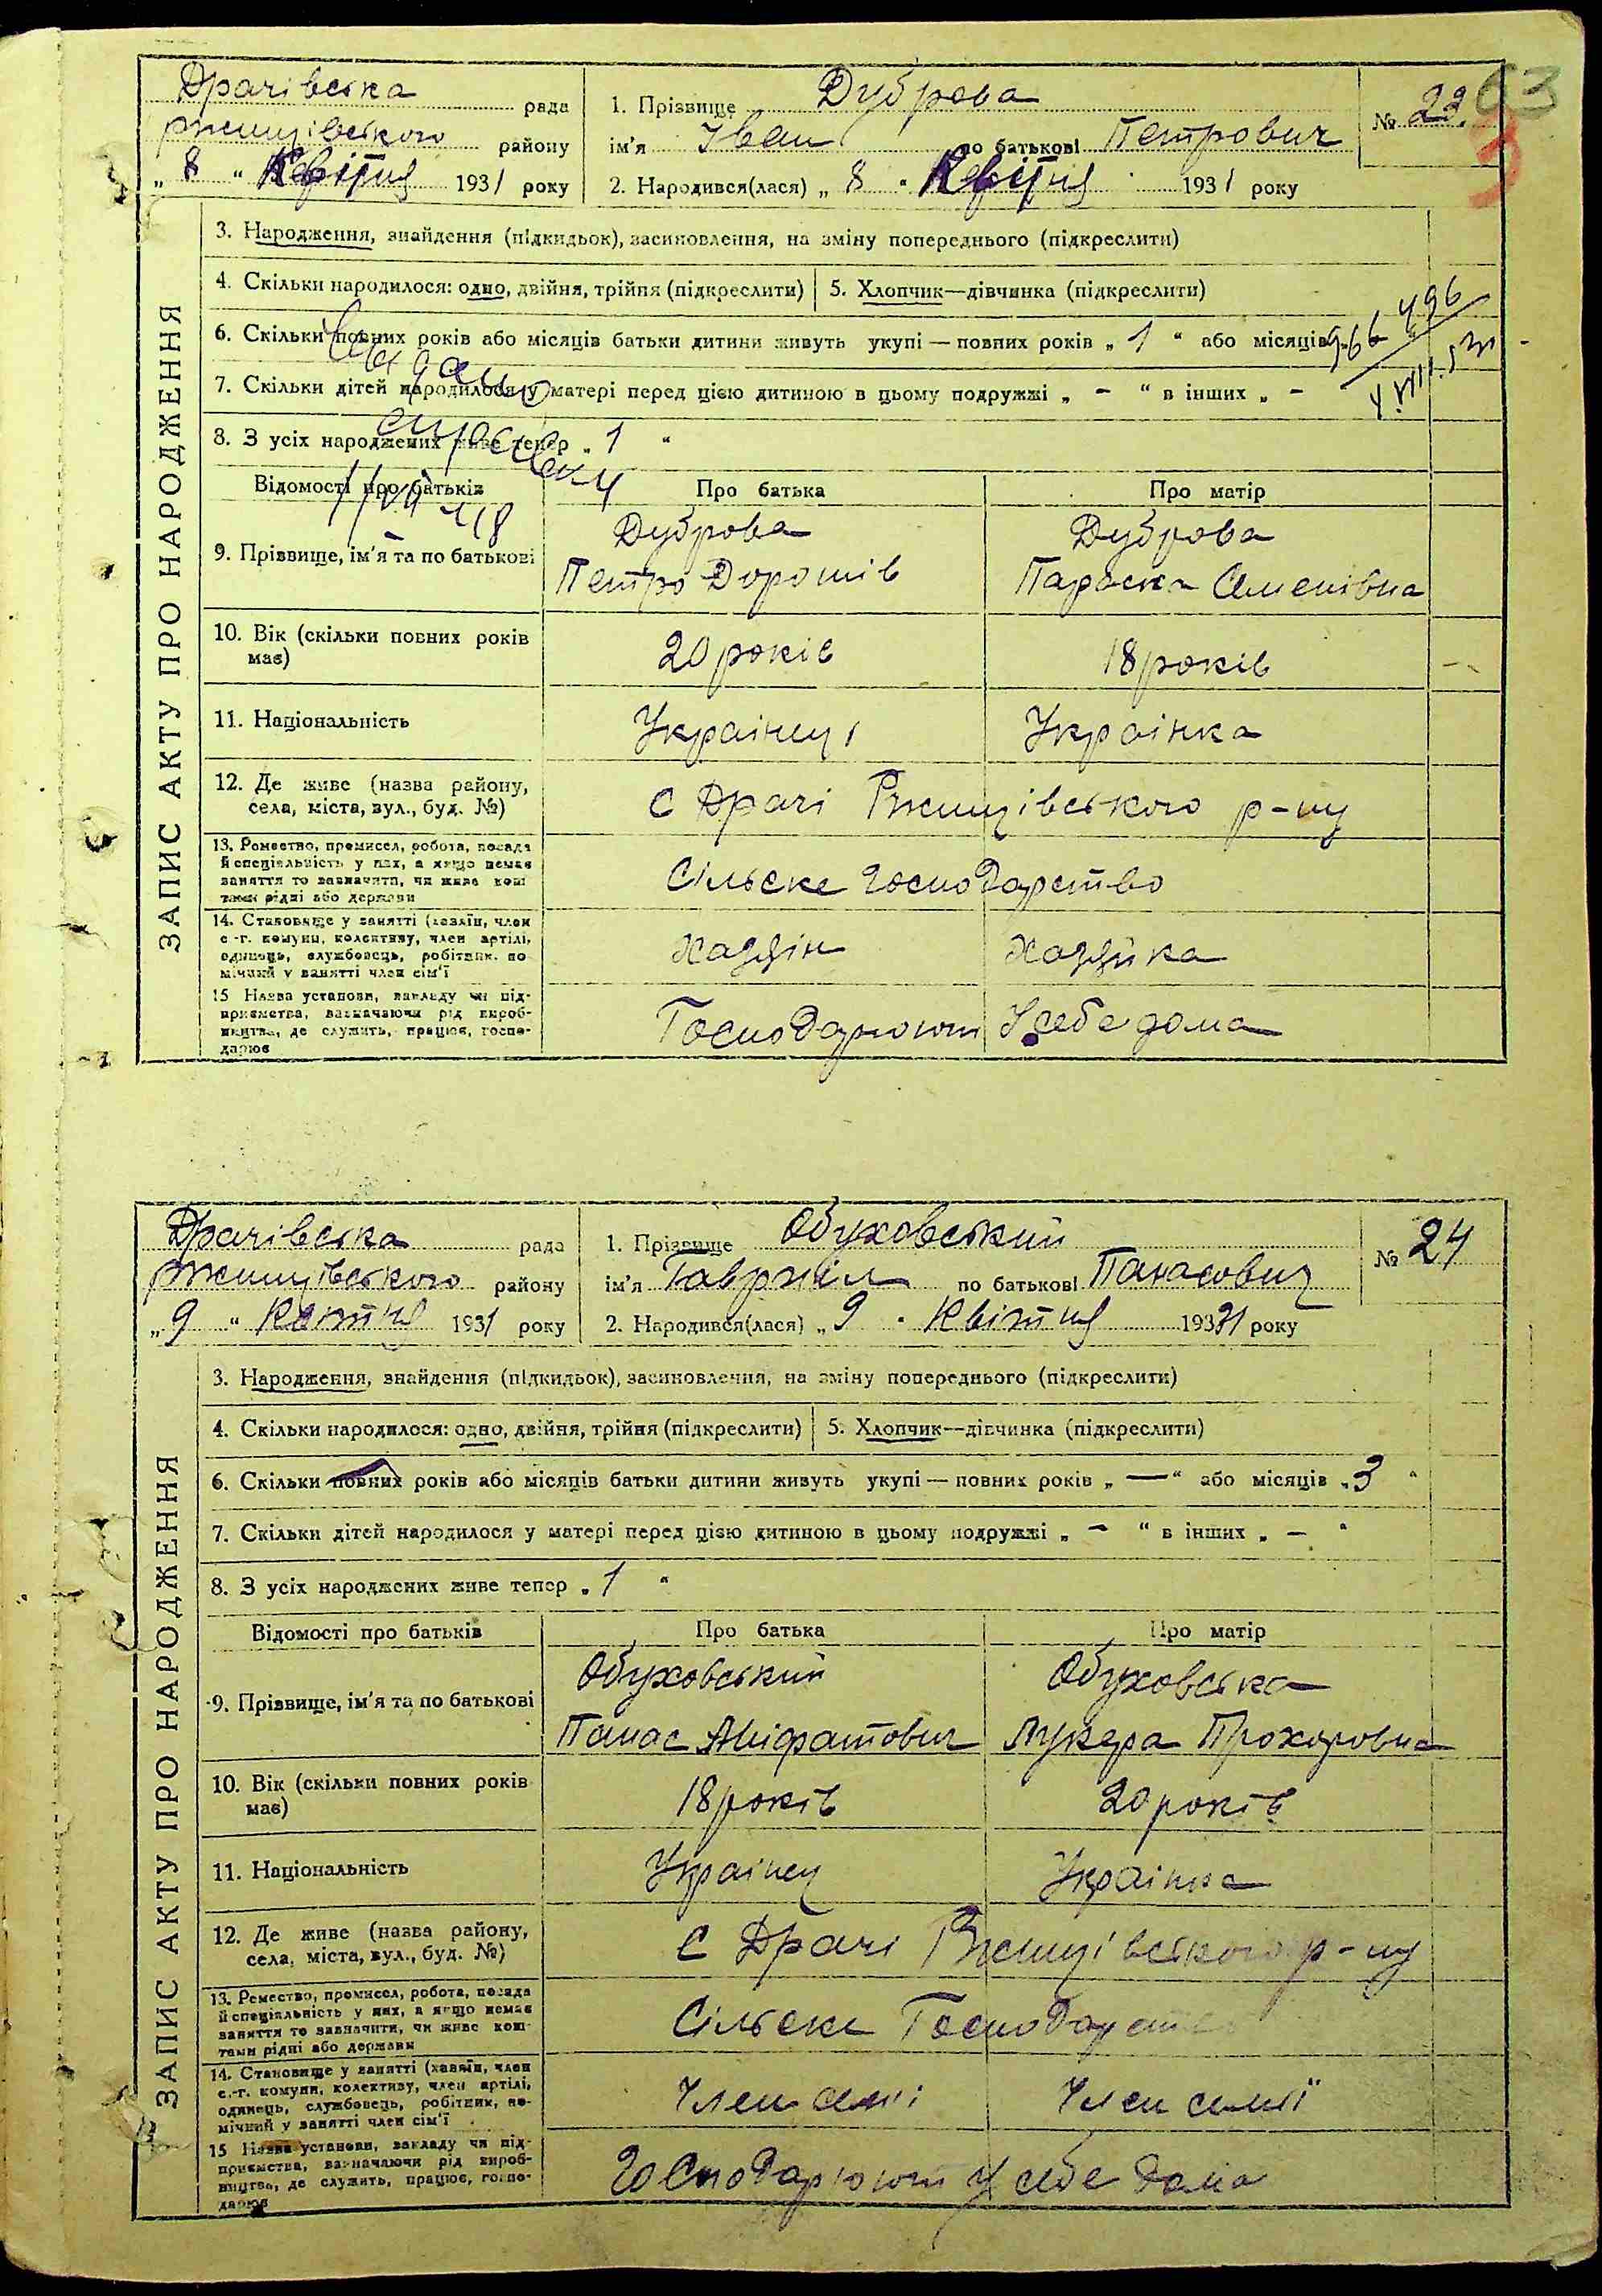 63
Драчівська рада
Ржищівського району
„ 8 “ Квітня 1931 року
1. Прізвище Дуброва
ім'я Іван по батькові Петрович
2. Народився(лася) „ 8 “ Квітня 1931 року
№ 22.
ЗАПИС АКТУ ПРО НАРОДЖЕННЯ
3. Народження, знайдення (підкидьок), засиновлення, на зміну попереднього (підкреслити)
4. Скільки народилося: одно, двійня, трійня (підкреслити)
5. Хлопчик—дівчинка (підкреслити)
6. Скільки повних років або місяців батьки дитини живуть укупі — повних років „ 1 “ або місяців
7. Скільки дітей народилося у матері перед цією дитиною в цьому подружжі „ - “ в інших „ -
8. З усіх народжених живе тепер „ 1 “
Відомості про батьків
Про батька
Про матір
9. Прізвище, ім'я та по батькові
Дуброва
Петро
Дуброва
Параска
10. Вік (скільки повних років має)
20 років
18 років
11. Національність
Українец
Українка
12. Де живе (назва району, села, міста, вул., буд. №)
С Драчі Ржищівського р-ну
13. Ремество, промисел, робота, посада й спеціальність у них, а якщо немає заняття то зазначити, чи живе коштами рідні або держави
Сільске Господарство
14. Становище у занятті (хазяїн, член с.-г. комуни, колективу, член артілі, одинець, службовець, робітник, помічний у занятті член сім'ї
Хаззїн
Хаззїйка
15 Назва установи, закладу чи підприємства, зазначаючи рід виробництва, де служить, працює, господарює
Господарюют У себе дома
Драчівська рада
Ржищівського району
„ 9 “ Квітня 1931 року
1. Прізвище Обуховський
ім'я Гавриіл по батькові Панасович
2. Народився(лася) „ 9 “ Квітня 1931 року
№ 24
ЗАПИС АКТУ ПРО НАРОДЖЕННЯ
3. Народження, знайдення (підкидьок), засиновлення, на зміну попереднього (підкреслити)
4. Скільки народилося: одно, двійня, трійня (підкреслити)
5. Хлопчик—дівчинка (підкреслити)
6. Скільки повних років або місяців батьки дитини живуть укупі — повних років „ — “ або місяців „ 3 “
7. Скільки дітей народилося у матері перед цією дитиною в цьому подружжі „ - “ в інших „ - “
8. З усіх народжених живе тепер „ 1 “
Відомості про батьків
Про батька
Про матір
9. Прізвище, ім'я та по батькові
Обуховський
Панас
Обуховська
Лукера Прохоровна
10. Вік (скільки повних років має)
18 років
20 років
11. Національність
Українец
Українка
12. Де живе (назва району, села, міста, вул., буд. №)
С Драчі Ржищівського р-ну
13. Ремество, промисел, робота, посада й спеціальність у них, а якщо немає заняття то зазначити, чи живе коштами рідні або держави
Сільске Господарство
14. Становище у занятті (хазяїн, член с.-г. комуни, колективу, член артілі, одинець, службовець, робітник, помічний у занятті член сім'ї
Член семі
Член семиї
15 Назва установи, закладу чи підприємства, зазначаючи рід виробництва, де служить, працює, господарює
Господарюют У себе дома